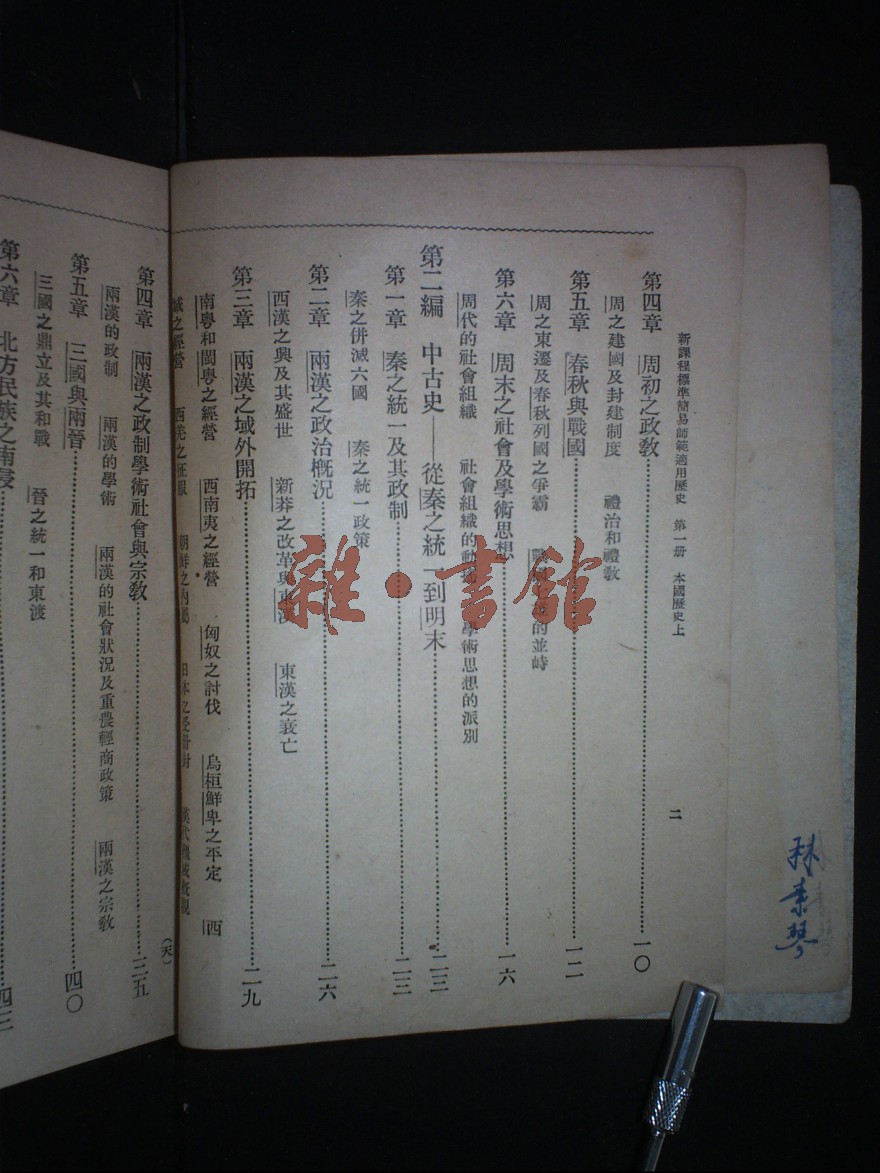 新課程標準簡易師範適用歷史 第一册 本國歷史上 二
第四章 周初之政敎 一〇
周之建國及封建制度 禮治和禮敎
第五章 春秋與戰國 一二
周之東遷及春秋列國之爭霸 的並峙
第六章 周末之社會及學術思想 一六
周代的社會組織 社會組織的動 學術思想的派別
第二編 中古史——從秦之統一到明末 二三
第一章 秦之統一及其政制 二三
秦之併滅六國 秦之統一政策
第二章 兩漢之政治概況 二六
西漢之興及其盛世 新莽之改革與東漢 東漢之衰亡
第三章 兩漢之域外開拓 二九
南粵和閩粵之經營 西南夷之經營 匈奴之討伐 烏桓鮮卑之平定 西
域之經營 西羌之征服 朝鮮之內屬 日本之受册封
(天)
第四章 兩漢之政制學術社會與宗敎 三五
兩漢的政制 兩漢的學術 兩漢的社會狀況及重農輕商政策 兩漢之宗敎
第五章 三國與兩晉 四〇
三國之鼎立及其和戰 晉之統一和東渡
第六章 北方民族之南侵 四三
雜·書館
林素琴